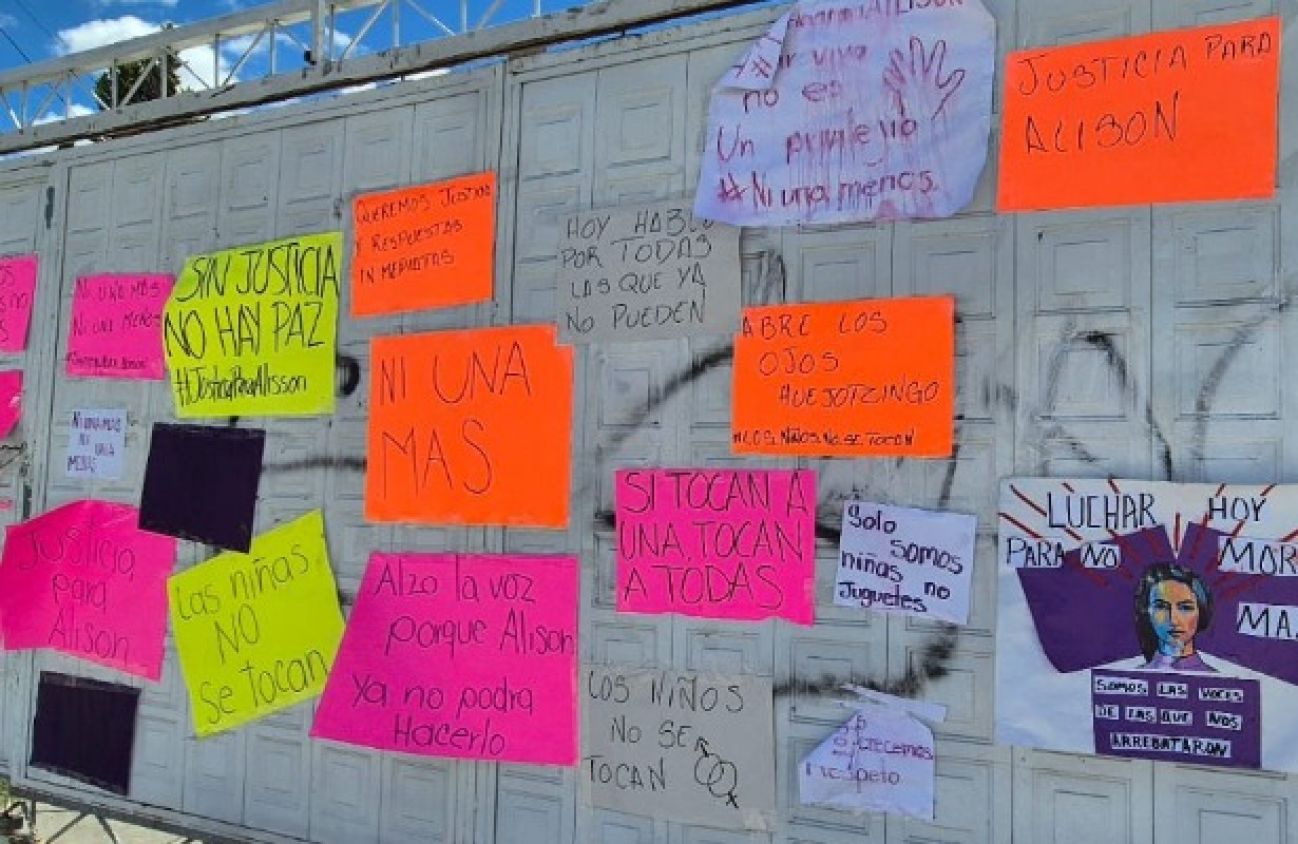 JUSTICIA PARA
ALISON
ALISON
vivir viva
no es
Un privilejio
#Ni una menos.
QUEREMOS JUSTICIA
Y RESPUESTAS
INMEDIATAS
HOY HABLO
POR TODAS
LAS QUE YA
NO PUEDEN
SIN JUSTICIA
NO HAY PAZ
#JusticiaParaAlisson
NI UNA MAS
NI UNA MENOS
NI UNA
MAS
ABRE LOS
OJOS
HUEJOTZINGO
#LOS NIÑOS NO SE TOCAN
NI UNA MAS
NI UNA
MENOS
SI TOCAN A
UNA, TOCAN
A TODAS
Solo
somos
niñas no
Juguetes
LUCHAR HOY
PARA NO
MAÑ
SOMOS LAS VOCES
DE LAS QUE NOS
ARREBATARON
Justicia
para
Alison
Las niñas
NO
se tocan
Alzo la voz
porque Alison
Ya no podra
Hacerlo
LOS NIÑOS
NO SE
TOCAN